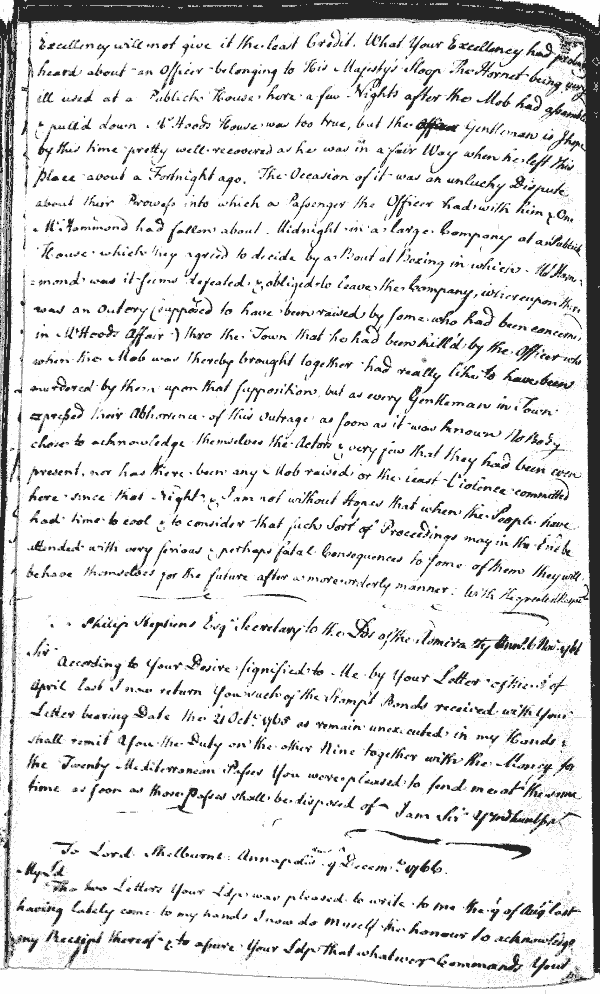 Excellency will not give it the least Credit. What Your Excellency had
heard about an Officer belonging to His Majesty's Sloop The Hornet being very
ill used at a Publick House here a few Nights after the Mob had assembled
& pull'd down Mr Hoods House was too true, but the Gentleman is I hope
by this time pretty well recovered as he was in a fair Way when he left this
place about a Fortnight ago. The Occasion of it was an unlucky Dispute
about their Prowess into which a Passenger the Officer had with him & One
Mr Hammond had fallen about Midnight in a large Company at a Publick
House which they agreed to decide by a Bout at Boxing in which Mr Ham-
mond was it seems defeated & obliged to leave the Company, whereupon there
was an Outcry (supposed to have been raised by some who had been concerned
in Mr Hoods Affair) thro the Town that he had been kill'd by the Officer who
when the Mob was thereby brought together had really like to have been
murdered by them upon that supposition, but as every Gentleman in Town
expressed their Abhorrence of this outrage as soon as it was known No Body
chose to acknowledge themselves the Actors & very few that they had been even
present, nor has there been any Mob raised or the least Violence committed
here since that Night, & I am not without Hopes that when the People have
had time to cool & to consider that such Sort of Proceedings may in the End be
attended with very serious & perhaps fatal Consequences to some of them they will
behave themselves for the future after a more orderly manner. With the greatest
Philip Stephens Esqr Secretary to the Lds of the Admiralty 6 Nov. 1766
Sir
According to Your Desire signified to Me by Your Letter of the of
April last I now return You such of the Stampt Bonds received with Your
Letter bearing Date the 21 Octr 1765 as remain unexecuted in my Hands &
shall remit You the Duty on the other Nine together with the Money for
the Twenty Mediterranean Passes You were pleased to send me at the same
time as soon as those Passes shall be disposed of I am Sir
To Lord Shelburne. Annapolis 9 Decemr 1766.
My Ld
The two Letters Your Ldp was pleased to write to me the of Augt last
having lately come to my hands I now do myself the honour to acknowledge
my Receipt thereof & to assure Your Ldp that whatever Commands Your